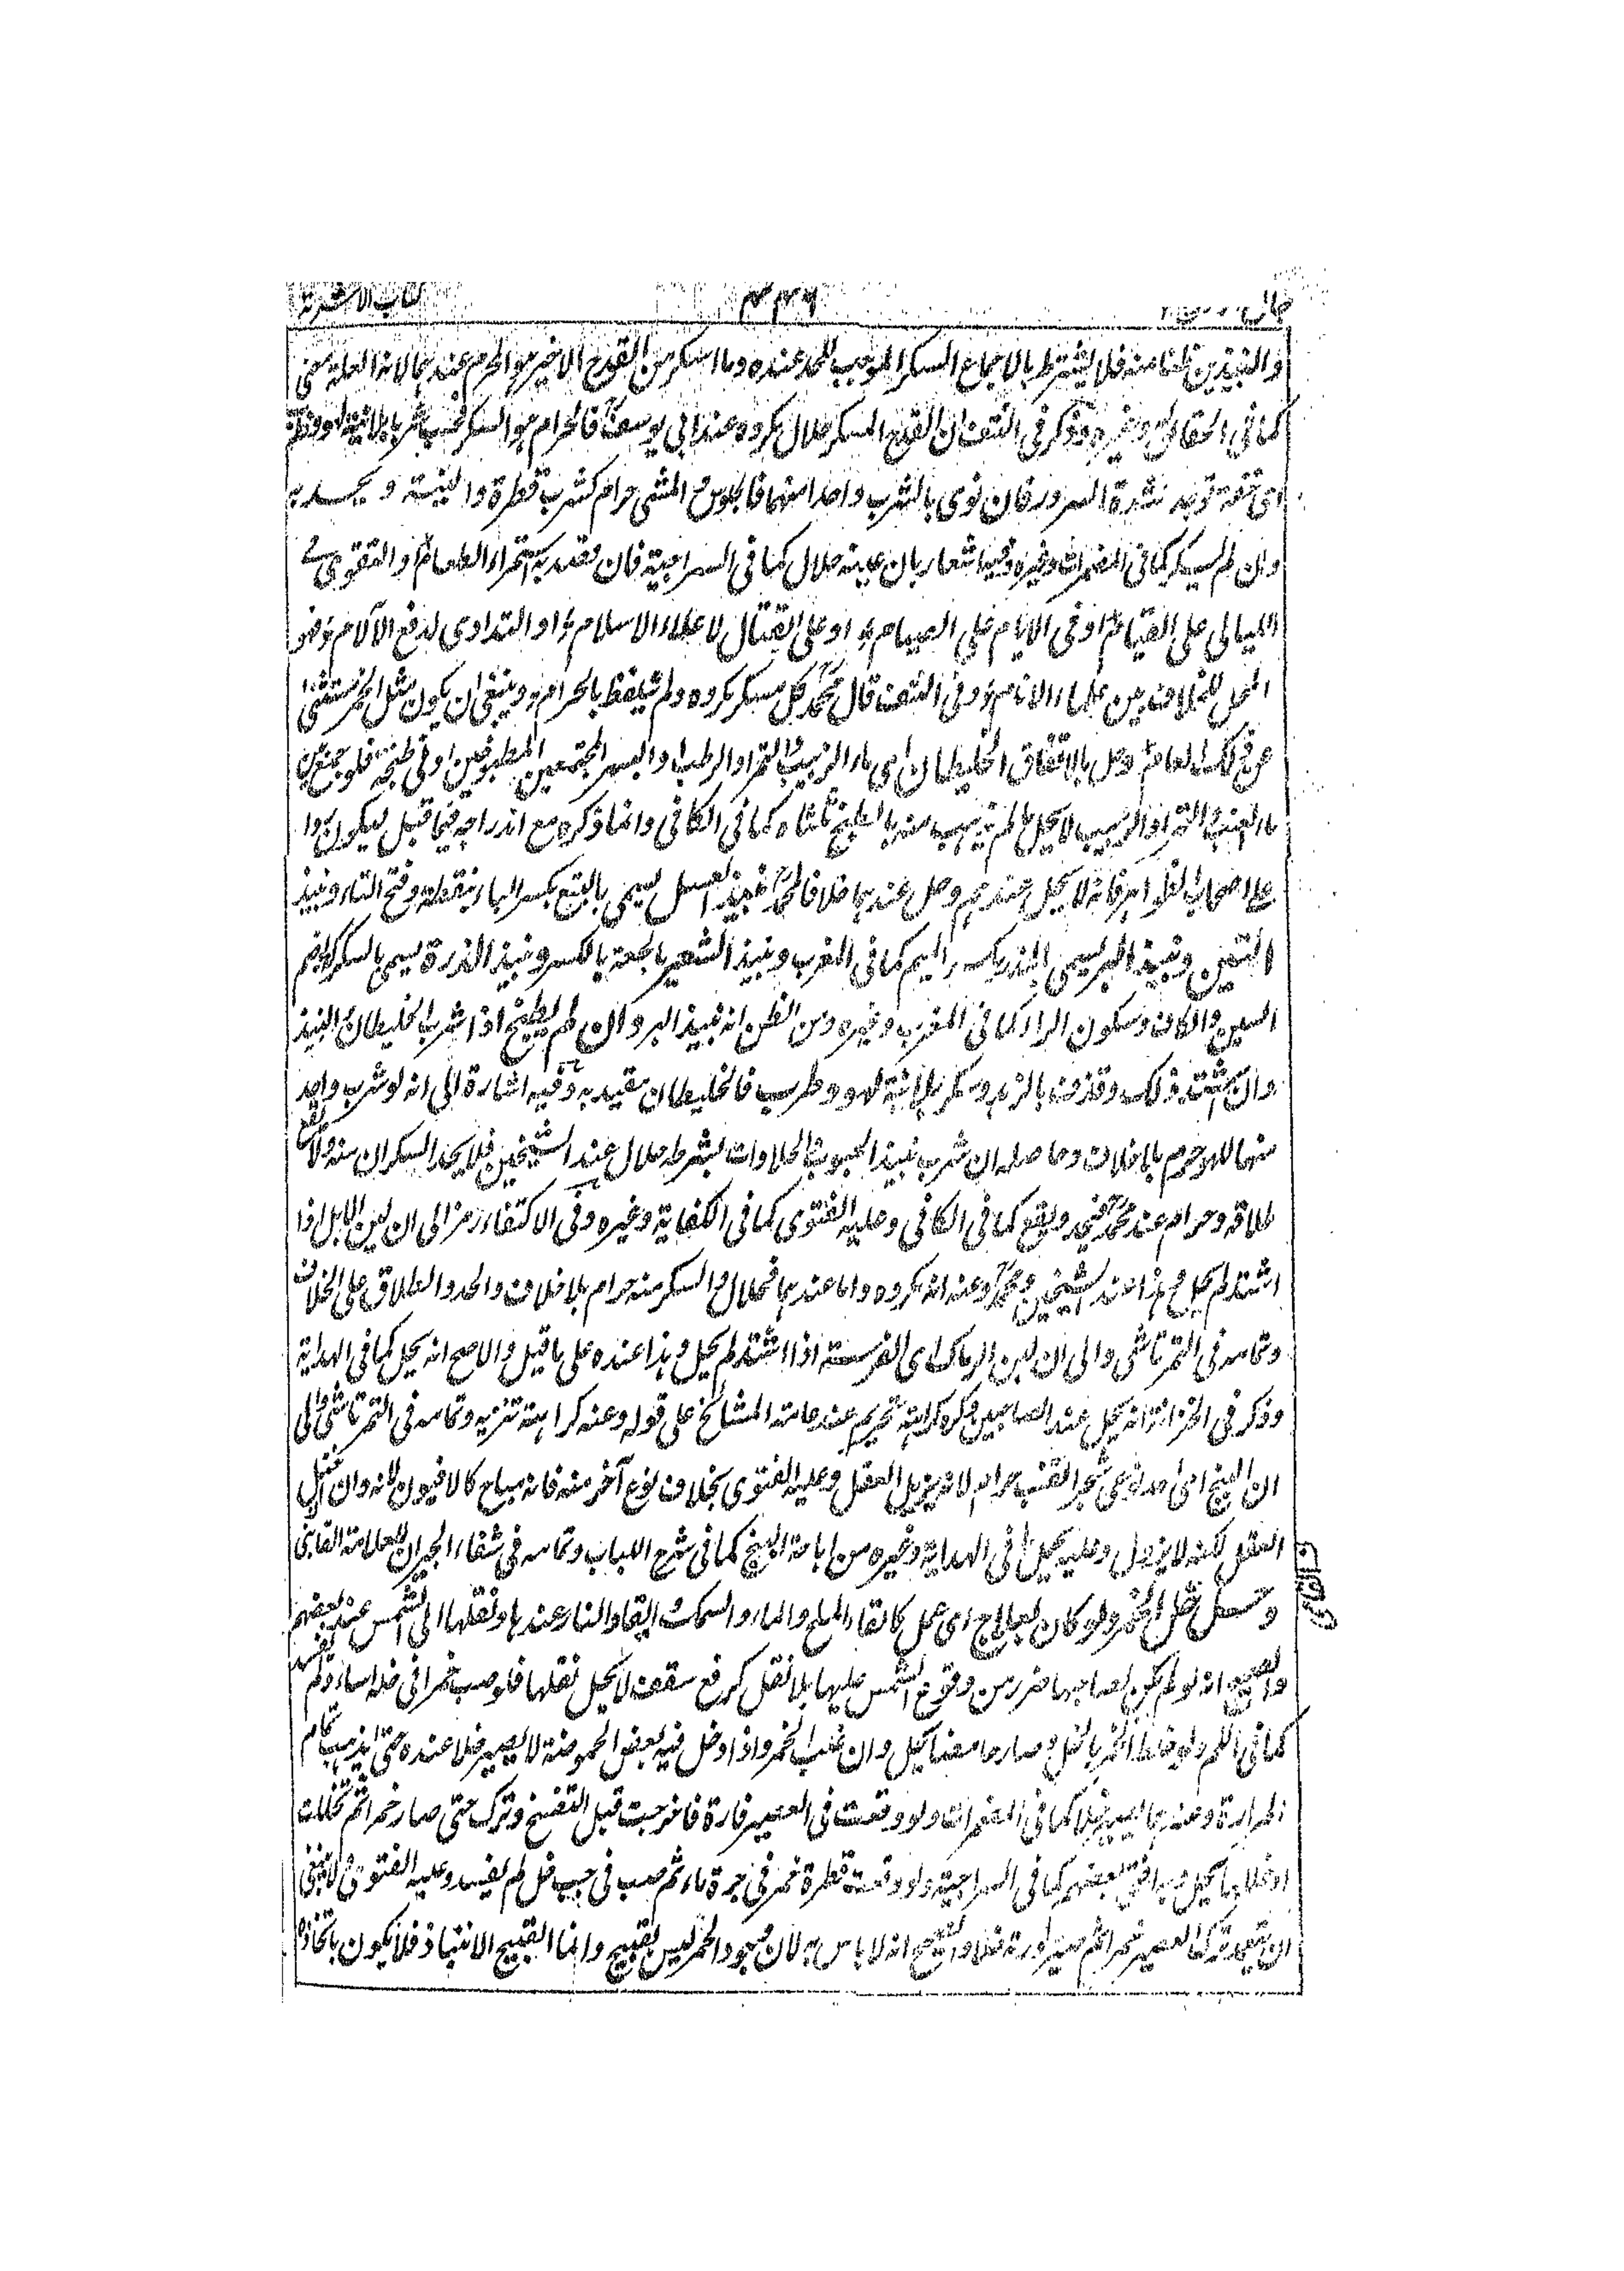 كتاب الاشربة
والنبيذين ظنا منه فلا يشترط بالاجماع السكر الموجب للحد عنده وما اسكر من القدح الاخير هو المحرم عندهما لانه العلة معنى
كما فى الحقائق وغيره وذكر فى النتف ان القدح المسكر حلال يكروه عند ابى يوسف فالحرام هو السكر فحسب شربا بلا نية لهو وطرب
اى خفة توجد نشدة السرور فان نوى بالشرب واحدا منهما فالجلوس مع المشى حرام كشرب قطرة والنية و يحد به
وان لم يسكر كما فى المضمرات وغيره وفيه اشعار بان عينه حلال كما فى السراجية فان قصد به استمراء الطعام او التقوى فى
الليالى على القيام او فى الايام على الصيام او على القتال لاعلاء الاسلام او التداوى لدفع الآلام فهو
المحل للخلاف بين علماء الانام وفى النتف قال محمد كل مسكر مكروه ولم يتلفظ بالحرام وينبغى ان يكون مثل الخمر مستثنى
وحل بالاتفاق الخليطان اى ماء الزبيب والتمر او الرطب او البسر المجتمعين المطبوخين او فى طبخة فلو جمع بين
ماء العنب والتمر او الزبيب لا يحل ما لم يذهب منه بالطبخ ثلثاه كما فى الكافى وانما ذكره مع اندراجه فيما قبل ليكون ردا
على اصحاب الظواهر فانه لا يحل عندهم وحل عندهما خلافا لمحمد نبيذ العسل يسمى بالبتع بكسر الباء بنقطة وفتح التاء ونبيذ
التين ونبيذ البر يسمى بالمزر بكسر الميم كما فى المغرب ونبيذ الشعير بالجعة بالكسر ونبيذ الذرة يسمى بالسكركة بضم
السين والكاف وسكون الراء كما فى المغرب وغيره ومن الظن انه نبيذ البر وان لم يطبخ اذا شرب الخليطان والنبيذ
وان اشتد ذلك وقذف بالزبد وسكر بلا نية لهو وطرب فالخليطان مقيد به وفيه اشارة الى انه لو شرب واحد
منها للهو حرم بلا خلاف وحاصله ان شرب نبيذ الحبوب والحلاوات بشرطه حلال عند الشيخين فلا يحد السكران منه ولا يقع
طلاقه وحرام عند محمد فيحد ويقع كما فى الكافى وعليه الفتوى كما فى الكفاية وغيره وفى الاكتفاء رمز الى ان لبن الابل اذا
اشتد لم يحل هذا عند الشيخين ومحمد وعنه انه مكروه واما عندهما فحلال والسكر منه حرام بلا خلاف والحد والطلاق على الخلاف
وتمامه فى التمرتاشى والى ان لبن الرماك اى الفرسة اذا اشتد لم يحل وهذا عنده على ما قيل والاصح انه يحل كما فى الهداية
وذكر فى الخزانة انه يحل عند الصاحبين ويكره كراهة تحريم عند عامة المشائخ على قوله وعنه كراهة تنزيه وتمامه فى التمرتاشى والى
ان البنج احد نوعى شجر القنب حرام لانه يزيل العقل وعليه الفتوى بخلاف نوع آخر منه فانه مباح كالافيون لانه وان اختل
العقل لكنه لا يزول وعليه يحمل ما فى الهداية وغيره من اباحة البنج كما فى شرح اللباب وتمامه فى شفاء الجيران للعلامة القاينى
وحل خل الخمر ولو كان بعلاج اى عمل كالقاء الملح والماء والسمك وايقاد النار عندها ونقلها الى الشمس عند بعضهم
والصحيح انه لو لم يكن لصاحبها ضرر من وقوع الشمس عليها بلا نقل كرفع سقف لا يحل نقلها فلو صب خمرا فى خل اساء ولم يفسد
كما فى الكرم ولو خلط الخمر بالخل وصار حامضا يحل وان غلب الخمر واذا دخل فيه بعض الحموضة لا يصير خلا عنده حتى يذهب تمام
المرارة وعندهما يصير خلا كما فى المضمرات ولو وقعت فى العصير فارة فاخرجت قبل التفسخ وترك حتى صار خمرا ثم تخللت
او خللها يحل وبه افتى بعضهم كما فى السراجية ولو وقعت قطرة خمر فى جرة ماء ثم صب فى حب خل لم يفسد وعليه الفتوى ولا ينبغى
ان يتعمد ترك العصير خمرا ثم صيرورته خلا والصحيح انه لا باس به لان وجود الخمر ليس بقبيح وانما القبيح الانتباذ فلا يكون باتخاذه